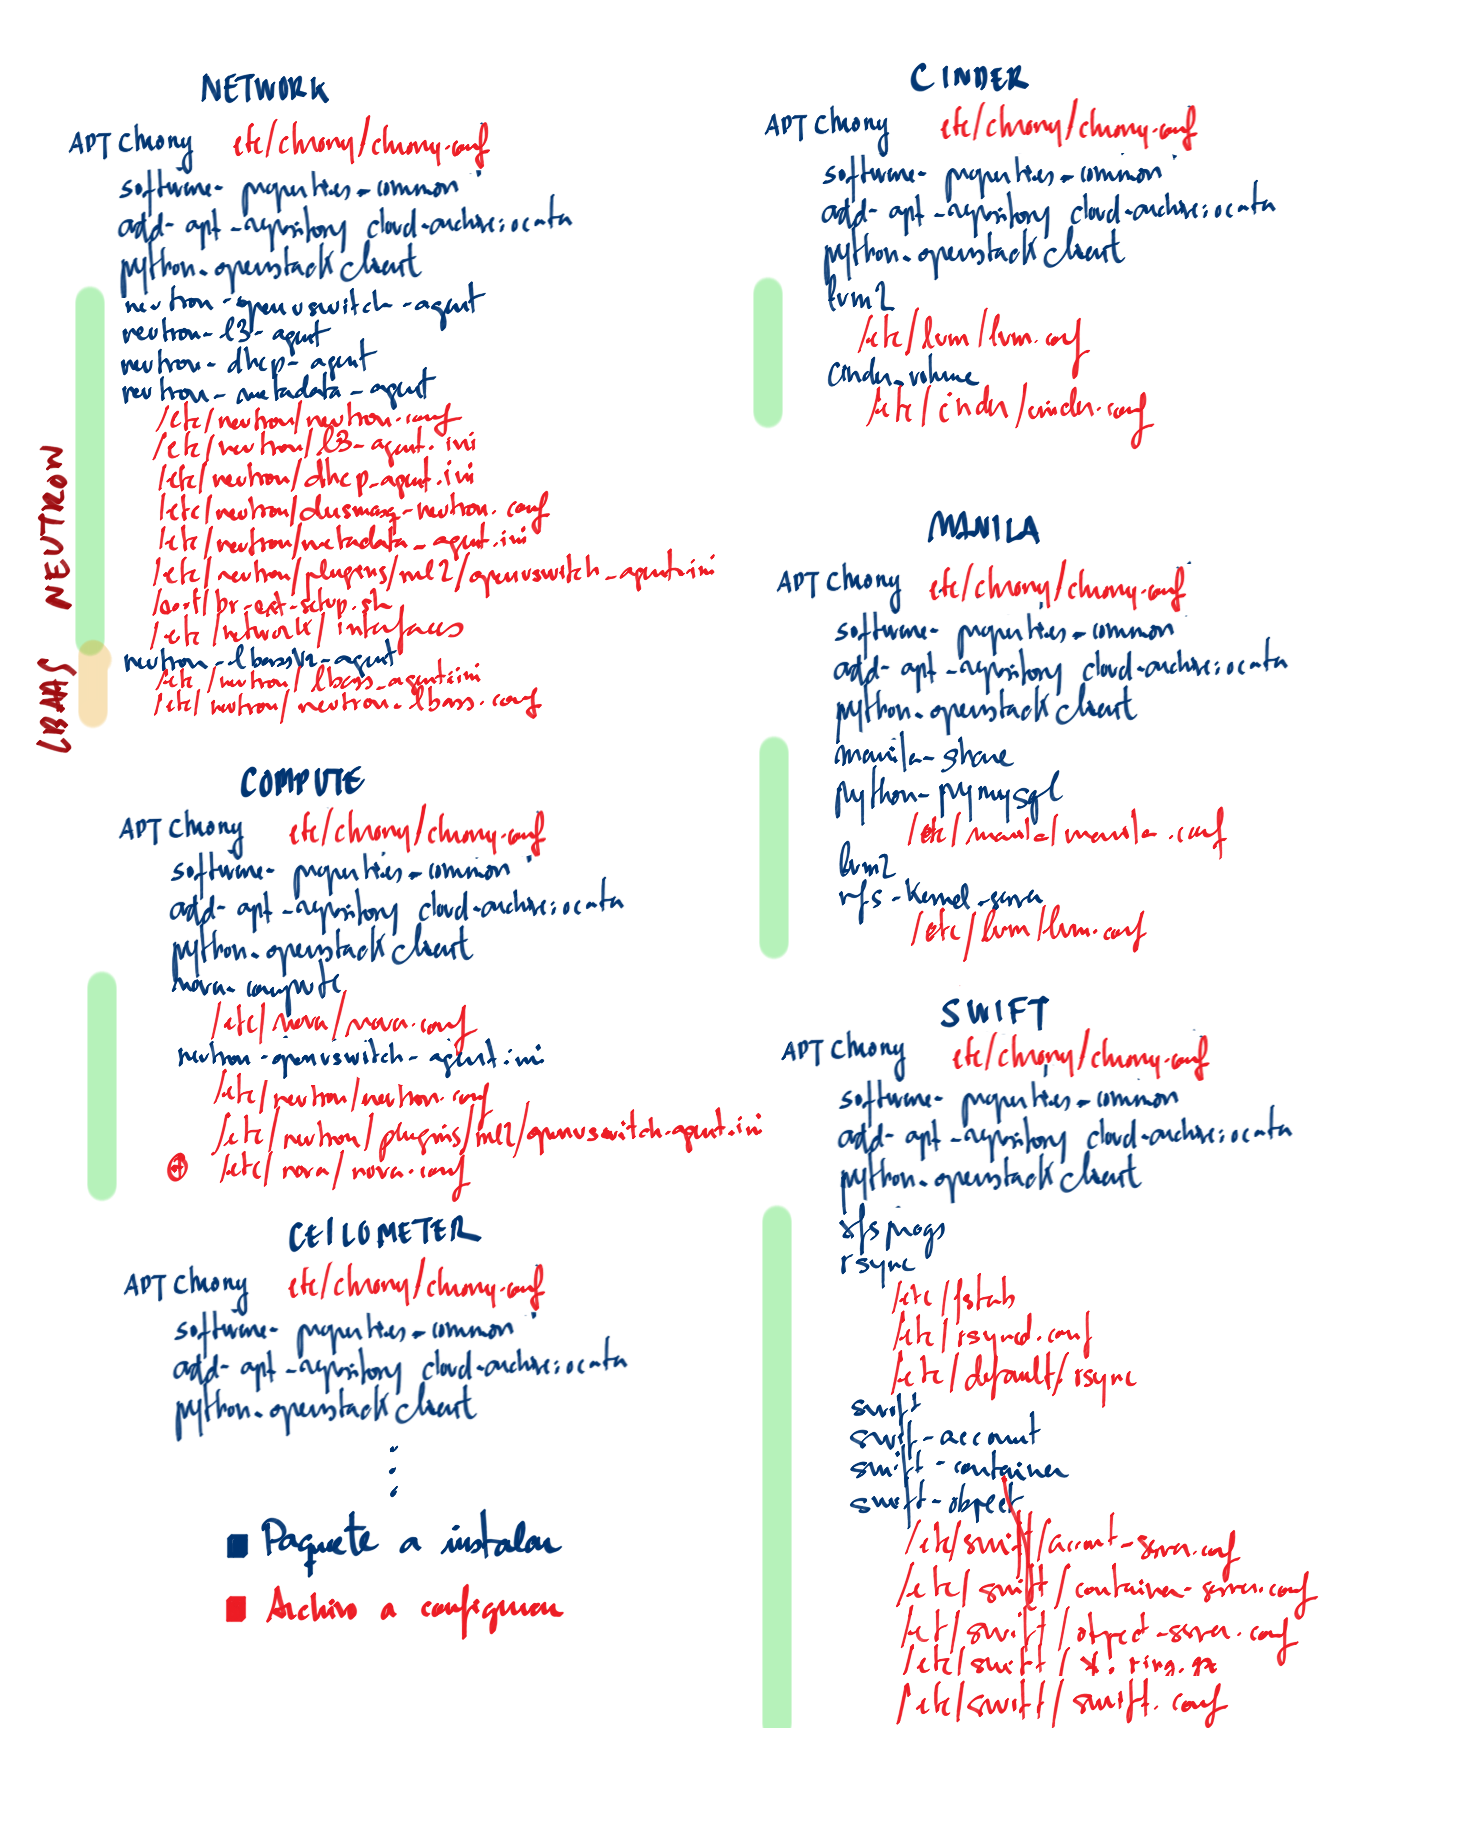 NETWORK
APT Chrony etc/chrony/chrony.conf
software-properties-common
add-apt-repository cloud-archive:ocata
python-openstackclient
neutron-openvswitch-agent
neutron-l3-agent
neutron-dhcp-agent
neutron-metadata-agent
/etc/neutron/neutron.conf
/etc/neutron/l3-agent.ini
/etc/neutron/dhcp_agent.ini
/etc/neutron/dnsmasq-neutron.conf
/etc/neutron/metadata_agent.ini
/etc/neutron/plugins/ml2/openvswitch_agent.ini
/br-ext-setup.sh
/etc/network/interfaces
NEUTRON
neutron-lbassv2-agent
/etc/neutron/lbass_agent.ini
/etc/neutron/neutron.lbass.conf
LBAAS
COMPUTE
APT Chrony etc/chrony/chrony.conf
software-properties-common
add-apt-repository cloud-archive:ocata
python-openstackclient
nova-compute
/etc/nova/nova.conf
neutron-openvswitch-agent.ini
/etc/neutron/neutron.conf
/etc/neutron/plugins/ml2/openvswitch-agent.ini
+ /etc/nova/nova.conf
CEILOMETER
APT Chrony etc/chrony/chrony.conf
software-properties-common
add-apt-repository cloud-archive:ocata
python-openstackclient
Paquete a instalar
Archivo a configurar
CINDER
APT Chrony etc/chrony/chrony.conf
software-properties-common
add-apt-repository cloud-archive:ocata
python-openstackclient
lvm2
/etc/lvm/lvm.conf
cinder_volume
/etc/cinder/cinder.conf
MANILA
APT Chrony etc/chrony/chrony.conf
software-properties-common
add-apt-repository cloud-archive:ocata
python-openstackclient
manila-share
python-pymysql
/etc/manila/manila.conf
lvm2
nfs-kernel-server
/etc/lvm/lvm.conf
SWIFT
APT Chrony etc/chrony/chrony.conf
software-properties-common
add-apt-repository cloud-archive:ocata
python-openstackclient
xfsprogs
rsync
/etc/fstab
/etc/rsyncd.conf
/etc/default/rsync
swift
swift-account
swift-container
swift-object
/etc/swift/account-server.conf
/etc/swift/container-server.conf
/etc/swift/object-server.conf
/etc/swift/*.ring.gz
/etc/swift/swift.conf